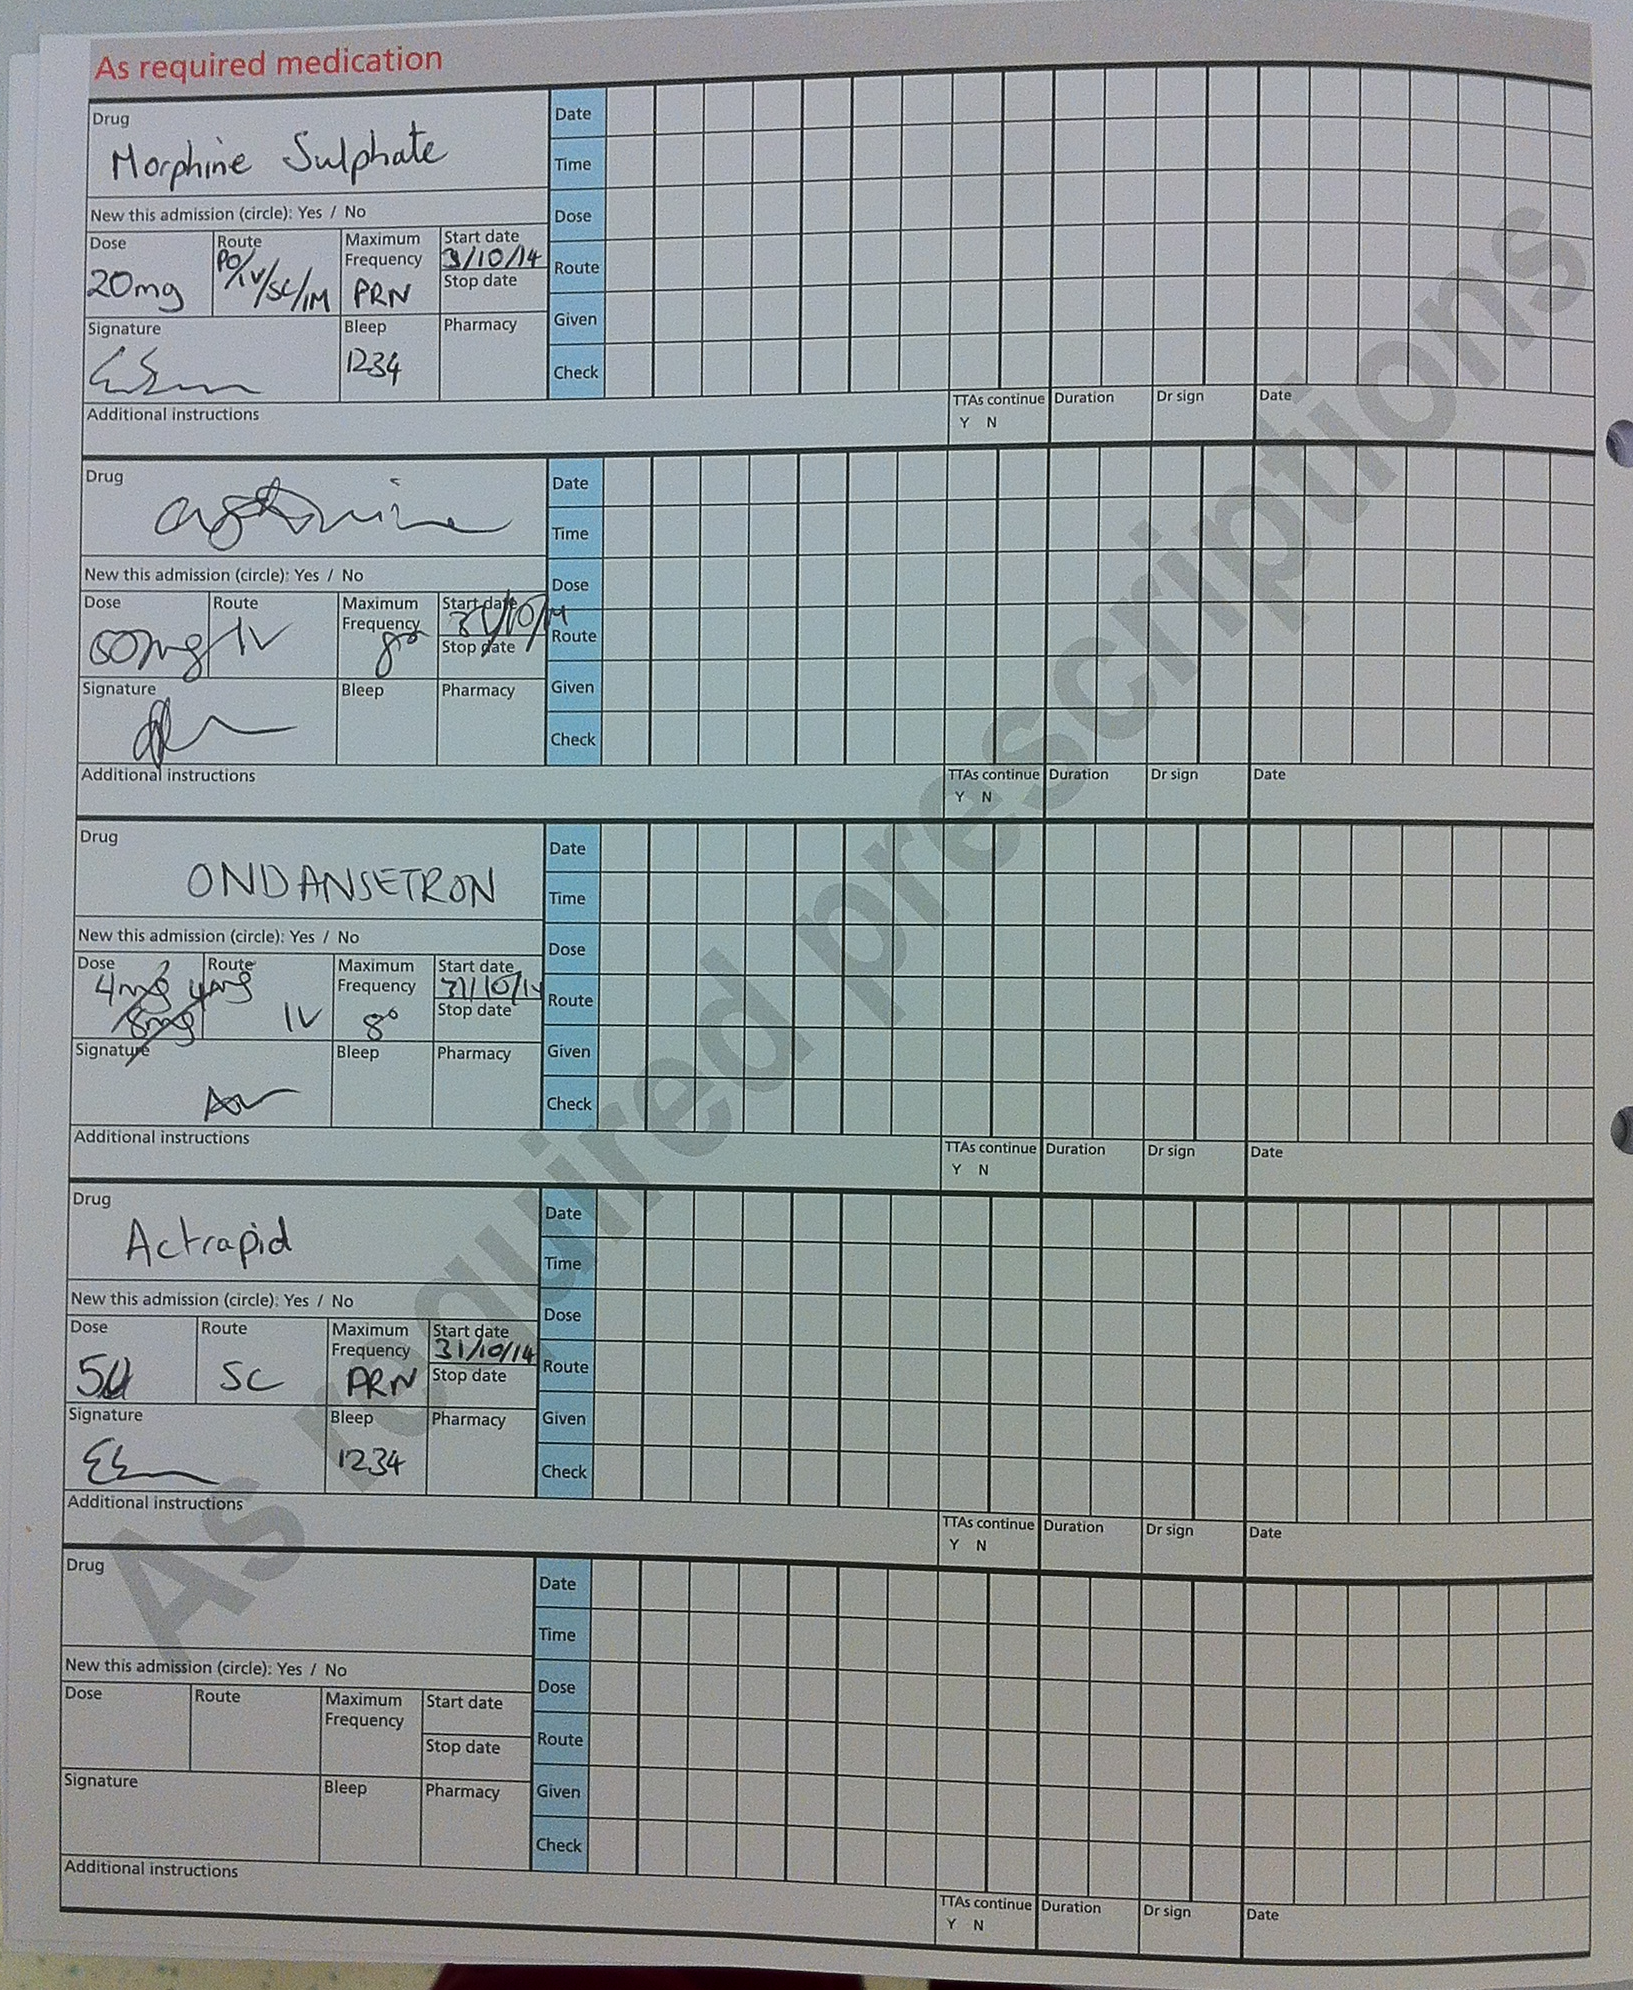 As required medication
Drug
Morphine Sulphate
New this admission (circle): Yes / No
Dose Route Maximum Frequency Start date
20mg PO/IV/SC/IM PRN 31/10/14
Stop date
Signature Bleep Pharmacy
1234
Additional instructions
Date
Time
Dose
Route
Given
Check
TTAs continue Duration Dr sign Date
Y N
Drug
New this admission (circle): Yes / No
Dose Route Maximum Frequency Start date
IV 8° 31/10/14
Stop date
Signature Bleep Pharmacy
Additional instructions
Date
Time
Dose
Route
Given
Check
TTAs continue Duration Dr sign Date
Y N
Drug
ONDANSETRON
New this admission (circle): Yes / No
Dose Route Maximum Frequency Start date
4mg 4mg 31/10/14
8mg IV 8°
Stop date
Signature Bleep Pharmacy
Additional instructions
Date
Time
Dose
Route
Given
Check
TTAs continue Duration Dr sign Date
Y N
Drug
Actrapid
New this admission (circle): Yes / No
Dose Route Maximum Frequency Start date
5u SC PRN 31/10/14
Stop date
Signature Bleep Pharmacy
1234
Additional instructions
Date
Time
Dose
Route
Given
Check
TTAs continue Duration Dr sign Date
Y N
Drug
New this admission (circle): Yes / No
Dose Route Maximum Frequency Start date
Stop date
Signature Bleep Pharmacy
Additional instructions
Date
Time
Dose
Route
Given
Check
TTAs continue Duration Dr sign Date
Y N
As required prescriptions